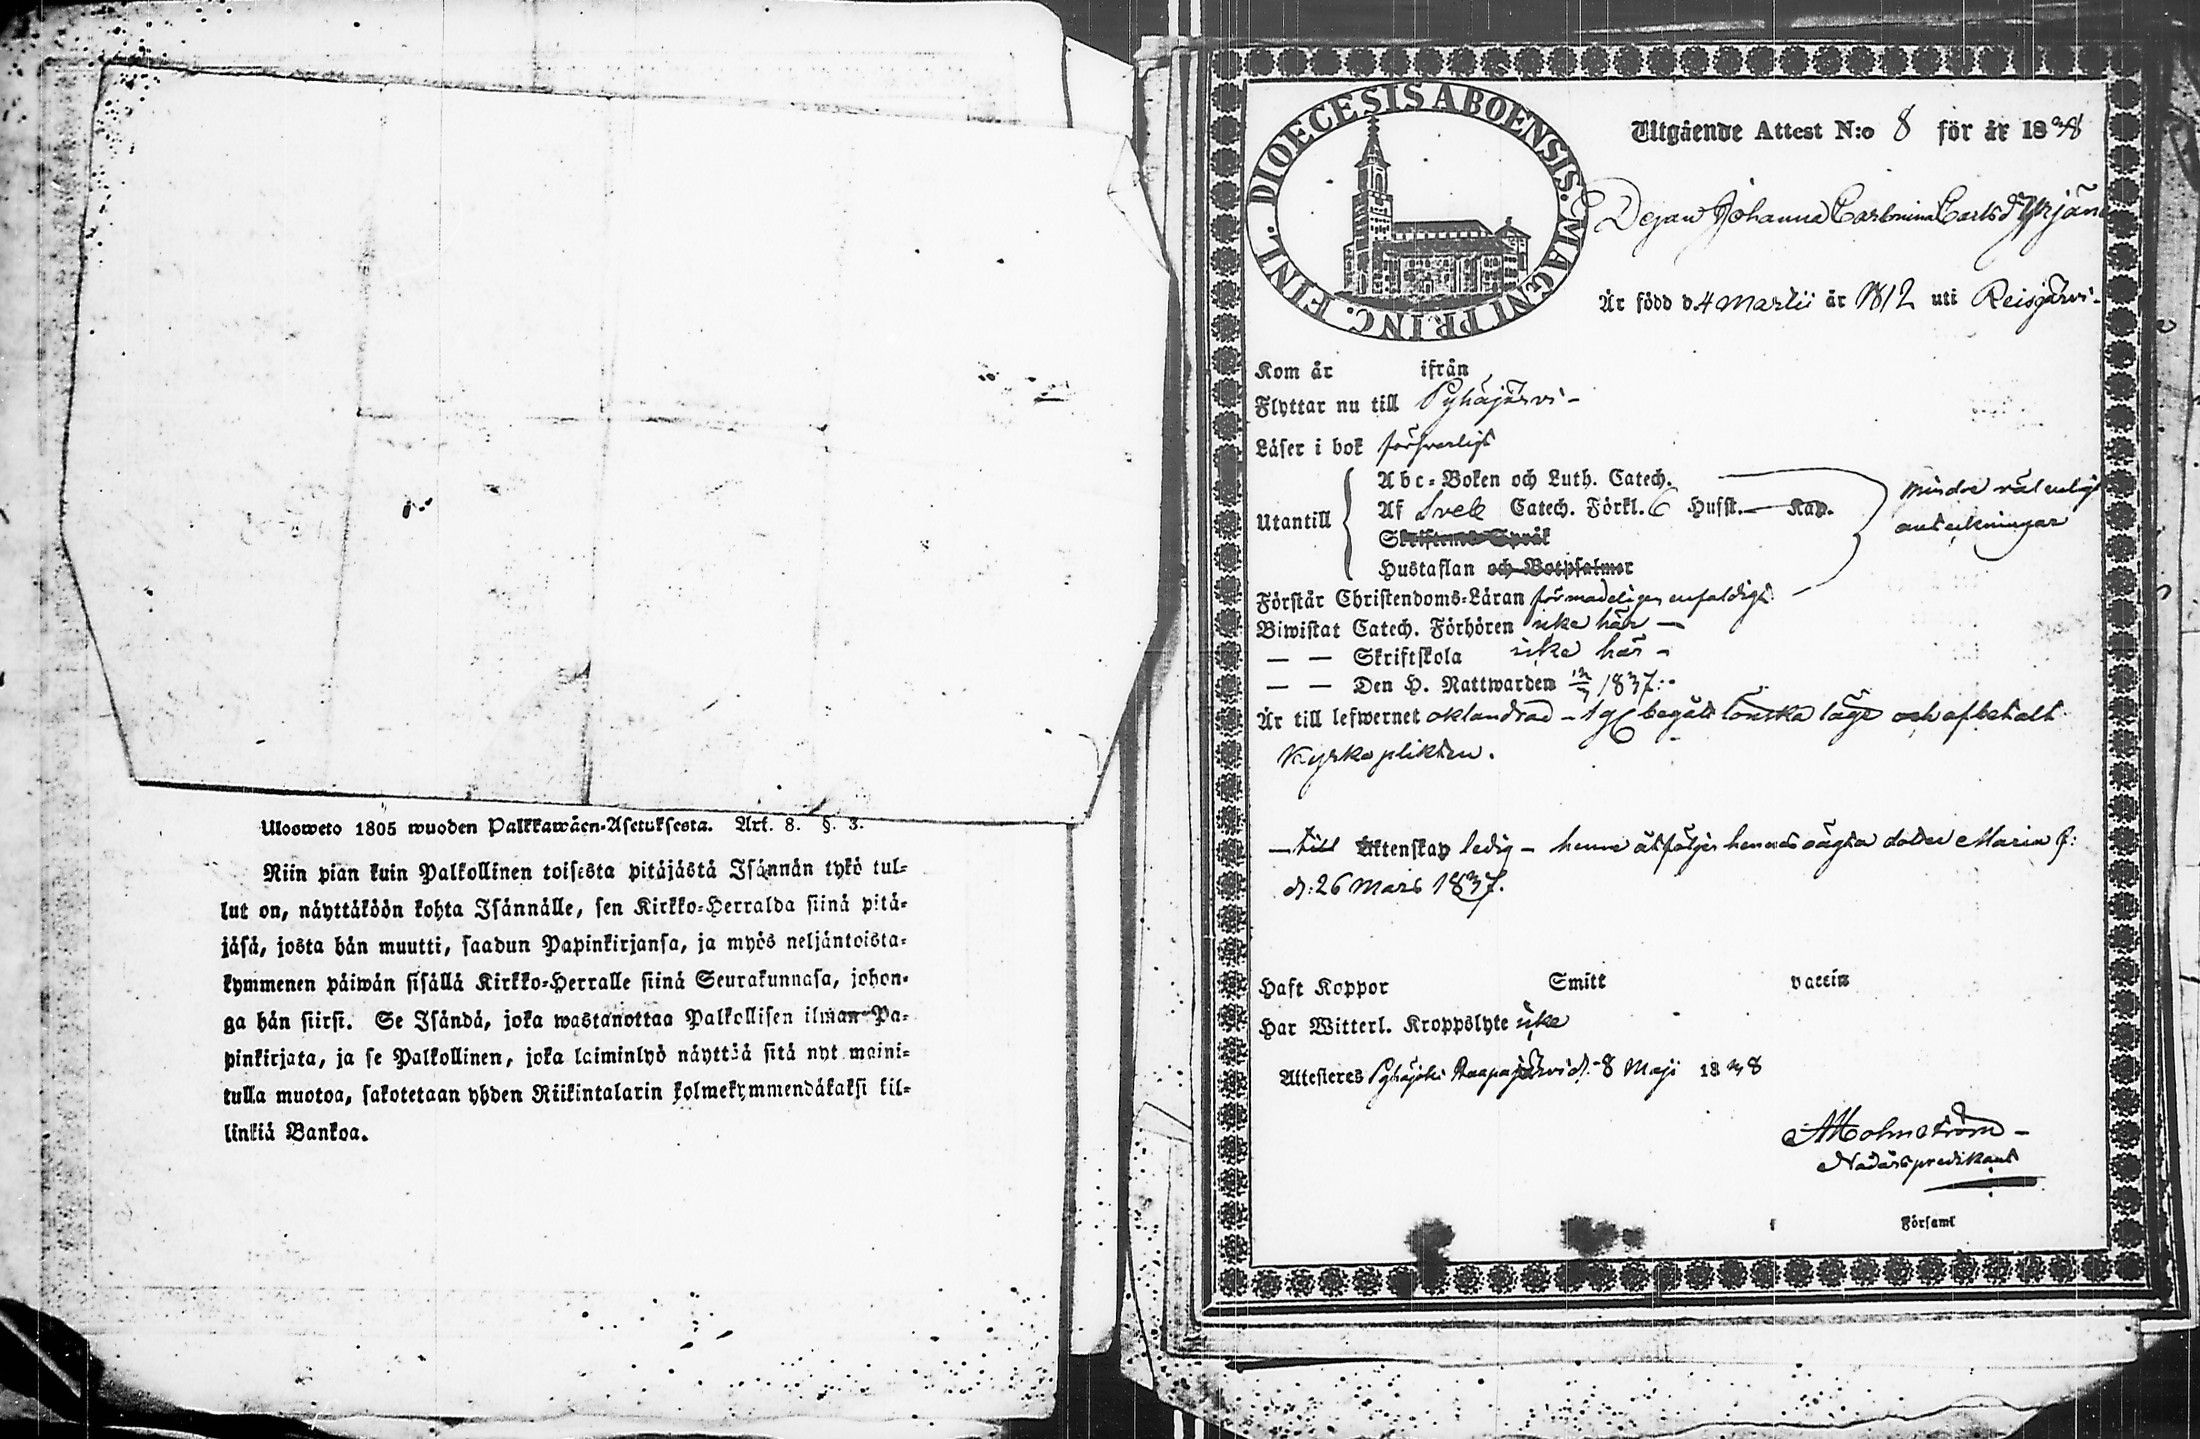 Ulosweto 1805 wuoden Palkkawäen-Asetuksesta. Art. 8. §. 3.
Niin pian kuin Palkollinen toisesta pitäjästä Isännän tykö tul-
lut on, näyttäköön kohta Isännälle, sen Kirkko-Herralda siinä pitä-
jäsä, josta hän muutti, saadun Papinkirjansa, ja myös neljäntoista-
kymmenen päiwän sisällä Kirkko-Herralle siinä Seurakunnasa, johon-
ga hän siirsi. Se Isändä, joka wastanottaa Palkollisen ilman Pa-
pinkirjata, ja se Palkollinen, joka laiminlyö näyttää sitä nyt maini-
tulla muotoa, sakotetaan yhden Riikintalarin kolmekymmendäkaksi kil-
linkiä Bankoa.
DIOECESIS ABOENSIS. MAGNI PRINC. FINL.
Utgående Attest N:o 8 för år 1838
Dejan Johanna Carlsd
Är född d. 4 Martii år 1812 uti Reisjärvi-
Kom år ifrån
Flyttar nu till Pyhäjärvi-
Läser i bok försvarligt
Utantill
Abc-Boken och Luth. Catech.
Af Sveb Catech. Förkl. 6 Hufst. Kap.
Skriftenes Språk
Hustaflan och Botpsalmer
mindre
anteckningar
Förstår Christendoms-Läran enfaldigt
Biwistat Catech. Förhören icke här -
- - Skriftskola icke här -
- - Den H. Nattwarden 12/3 1837.
Är till lefwernet oklandrad - begått lönska läge och afbetalt
Kyrkoplikten.
- till Äktenskap ledig - henne åtföljer hennes oägta dotter Maria f:
d: 26 Mars 1837.
Haft Koppor Smitt vaccin
Har Witterl. Kroppslyte icke
Attesteres Pyhäjoki Haapajärvi d. 8 Maji 1838
A Holmström -
Nådårspredikant
Församl